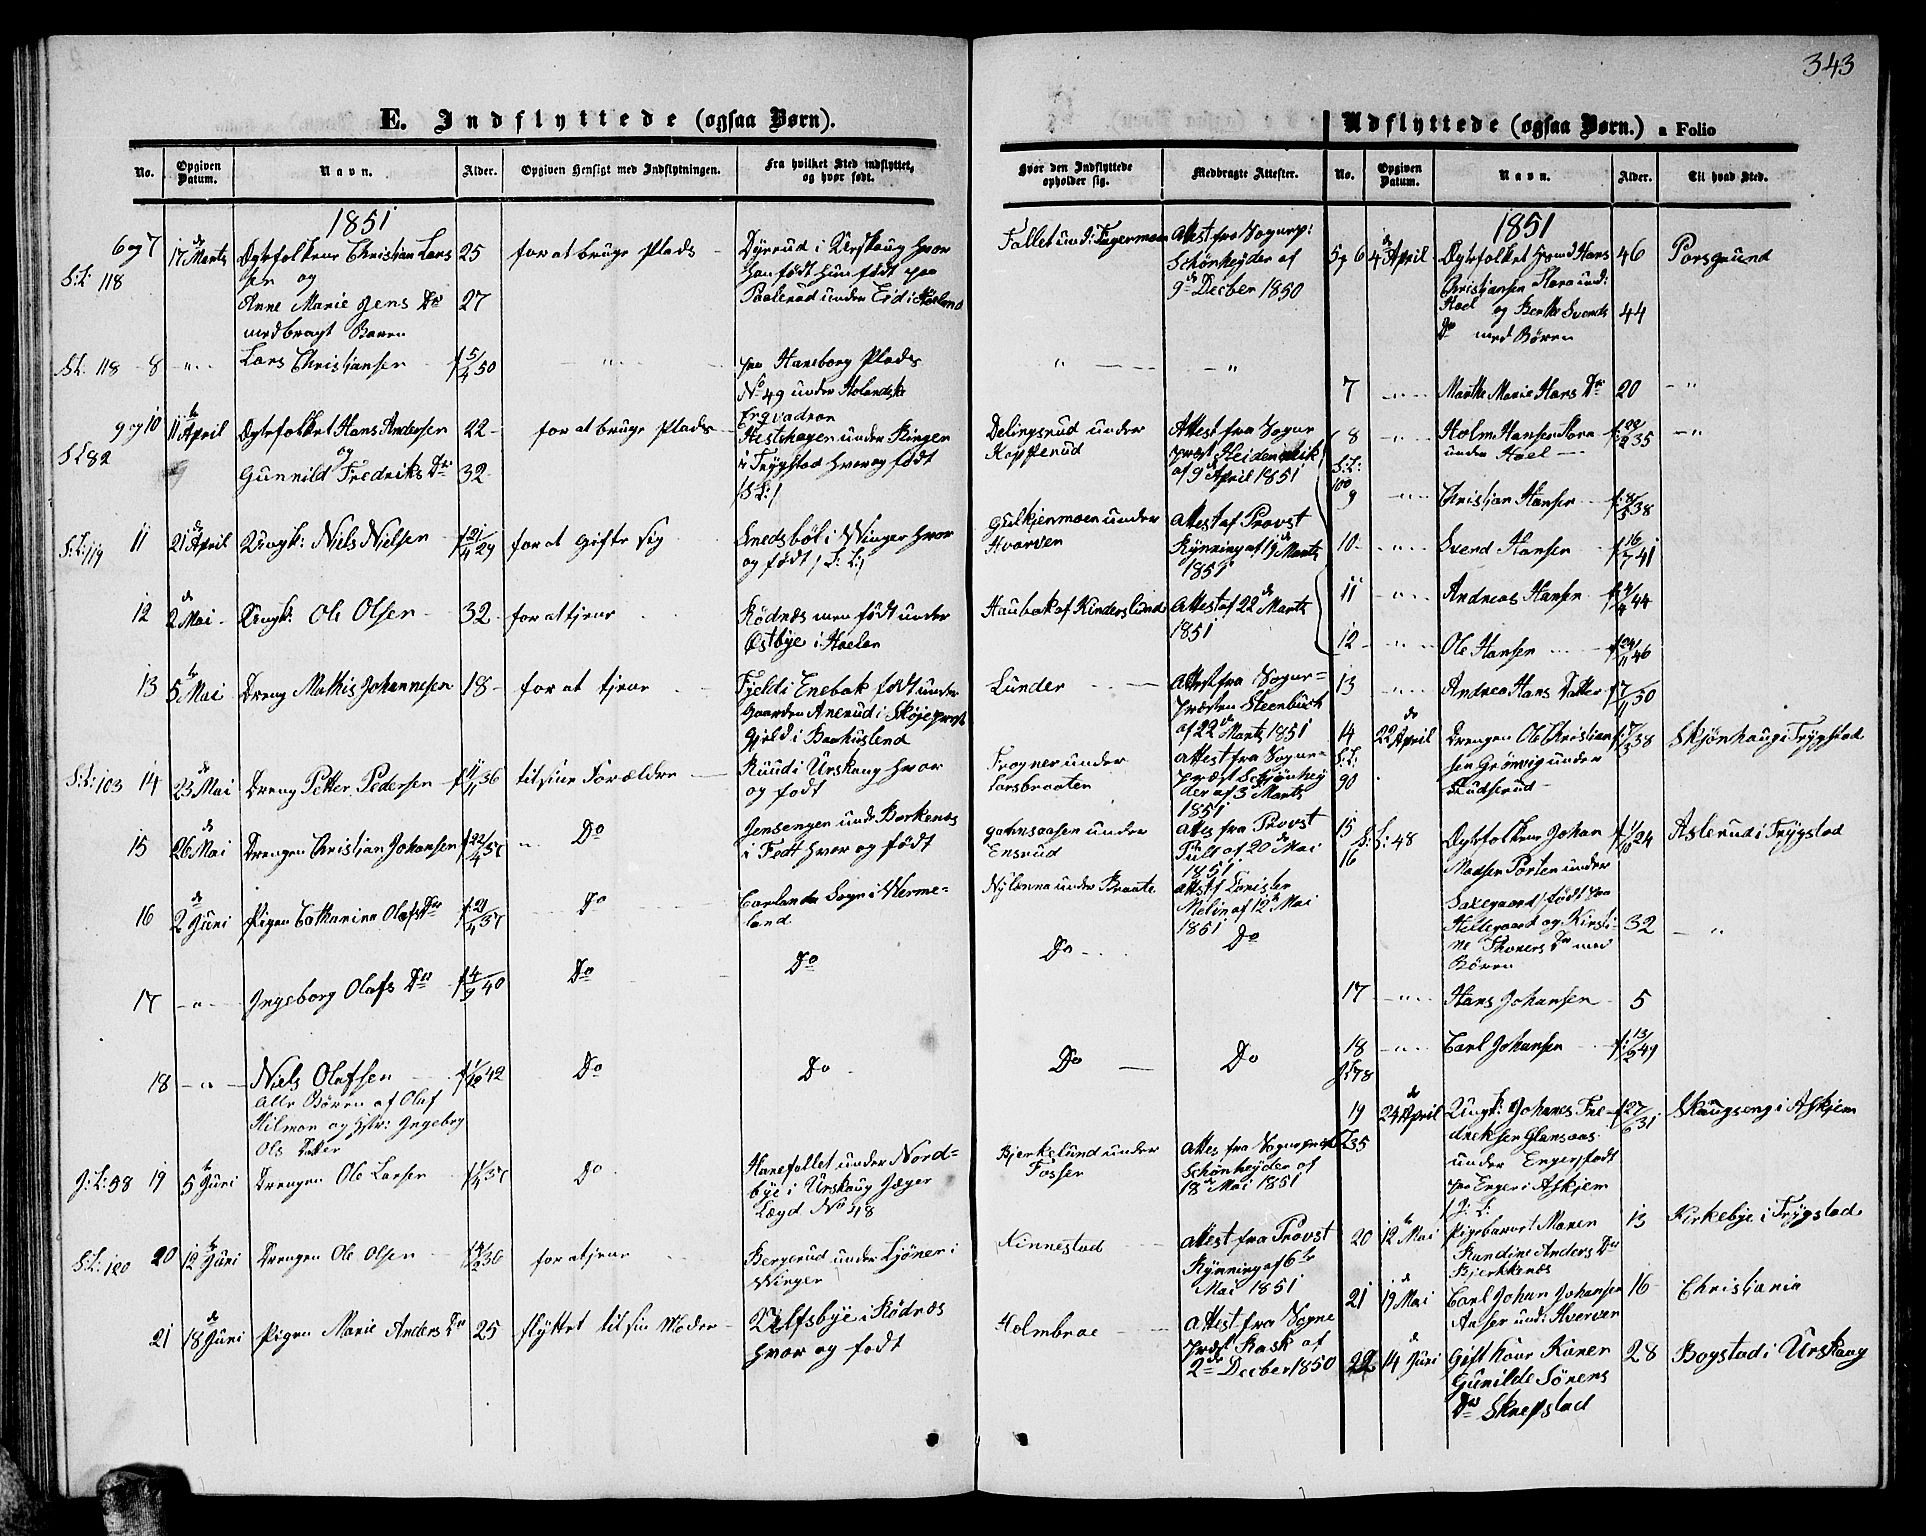 343
E. Indflyttede (ogsaa Børn).
No.
Opgiven Datum.
Navn.
Alder.
Opgiven Hensigt med Indflytningen.
Fra hvilket Sted indflyttet, og hvor født.
Hvor den Indflyttede opholder sig.
Medbragte Attester.
1851
6 og 7
S:L: 118
17de Marts
Christian Lars
sen og
Anne Marie Jens Dr
medbragt Barn
25
27
for at bruge Plads
Dyrerud i Urskoug hvor
han født hun født paa
Attest fra Sognep:
Schønheyder af
9de Decber 1850
S.L: 118
8
Lars Christiansen
f 5/4 50
paa Hansborg Plads
No 49 under Holandske
9 og 10
S L 82
11te April
Hans Andersen
og
Gunnild Fredriks Dr
22
32
for at bruge Plads
Hestehagen under Ringer
i Trygstad hvor og født
Delingsrud under
Kopperud
Attest fra Sogne
præst Heidenreich
af 9de April 1851
S:L: 119
11
21de April
Ungk: Niels Nielsen
f 21/4 29
for at gifte sig
Snedsbøl i Winger hvor
og født / S: L: /
Gulkjenmoen under
Hvarven
Attest af Provst
Rynning af 19de Marts
1851
12
2de Mai
Ungk: Ole Olsen
32
for at tjene
Rødnæs men født under
Østbye i Høeland
Haubak af Kinderslund
Attest af 22de Marts
1851
13
5te Mai
Dreng Mathis Johannesen
18
for at tjene
Fjeld i Enebak født under
Gaarden Anerud i Skøje præst
Gjeld i Baahuslend
Lunder
Attest fra Sogne-
Præsten Steenbuch
af 22de Marts 1851
S:L: 103
14
23de Mai
Dreng Petter Pedersen
f 11/11 36
til sine Forældre
Ruud i Urskoug hvor
og født
Frogner under
Larsbraaten
Attest fra Sogne-
Præst Schønhey
der af 3de Marts
1851
15
26de Mai
Drengen Christian Johansen
f 22/4 51
Do
Jensengen unde Borkenæs
i Fedt hvor og født
Johnsaasen under
Ensrud
Attes fra Provst
Tult af 20de Mai
1851
16
2de Juni
Pigen Catharina Olafs Dr
f 21/4 37
Do
Carlanda Sogn i Werme-
land
Nylænna under Braate
Melin af 12te Mai
1851
17
Ingeborg Olafs Dr
f 4/9 40
Do
Do
Do
Do
18
Niels Olafsen
f 1/12 42
Alle Børn af Olaf
Hilman og Hstr: Ingeborg
Ols Datter
Do
Do
Do
Do
J:L: 58
19
5te Juni
Drengen Ole Larsen
Do
Hanefallet under Nord-
bye i Urskoug Jæger
Lægd No 48
Bjerkelund under
Fosser
Attes fra Sognepræst
Schønheyder af
18de Mai 1851
S:L: 120
20
12te Juni
Drengen Ole Olsen
for at tjene
Bergerud under Tjøner i
Winger
Kinnestad
Attest fra Provst
Rynning af 6te
Mai 1851
21
18de Juni
Pigen Marie Anders Dr
25
flyttet til sin Moder
Ulfsbye i Rødnæs
hvor og født
Holmbroe
Attest fra Sogne
præst Rask af
2den Decber 1850
Udflyttede (ogsaa Børn.) a Folio
No.
Opgiven Datum.
Navn.
Alder.
Til hvad Sted.
1851
5 og 6
4de April
Hans
Christiansen Hara und:
Hoel og Berthe Svends
Dr med Børn
46
44
Porsgrund
7
Marthe Marie Hans Dr
20
8
Holm Hansen Hara
under Hoel
f 29/2 35
S:L:
100
9
Christian Hansen
f 8/5 38
10
Svend Hansen
f 16/7 41
11
Andreas Hansen
f 4/4 44
12
Ole Hansen
f 24/11 46
13
Andrea Hans Datter
f 7/11 50
14
S:L:
90
22de April
Drengen Ole Christian
sen Grønvig under
Rudserud
f 17/3 38
Skjønhaug i Trygstad
15
16
S:L: 48
Johan
Madsen Porten under
Saxegaard / født paa
Hellegaard og Kirsti-
ne Thoners Dr med
Børn
f 11/10 24
32
Aslerud i Trygstad
17
Hans Johansen
5
18
Carl Johansen
f 13/2 49
78
19
24de April
Ungk: Johanes Fre-
dreksen Glansaas
under Enger, født
paa Enger i Askjem
f 27/6 31
Skaugseng i Askjem
235
20
12te Mai
Pigebarnet Maren
Randine Anders Dr
Bjerkenæs
13
Kirkebye i Trygstad
21
19de Mai
Carl Johan Johansen
Aaser und: Hverven
16
Christiania
22
14de Juni
Gift Kone Karen
Gunilde Sørens
Dr Skrepstad
28
Bogstad i Urskoug